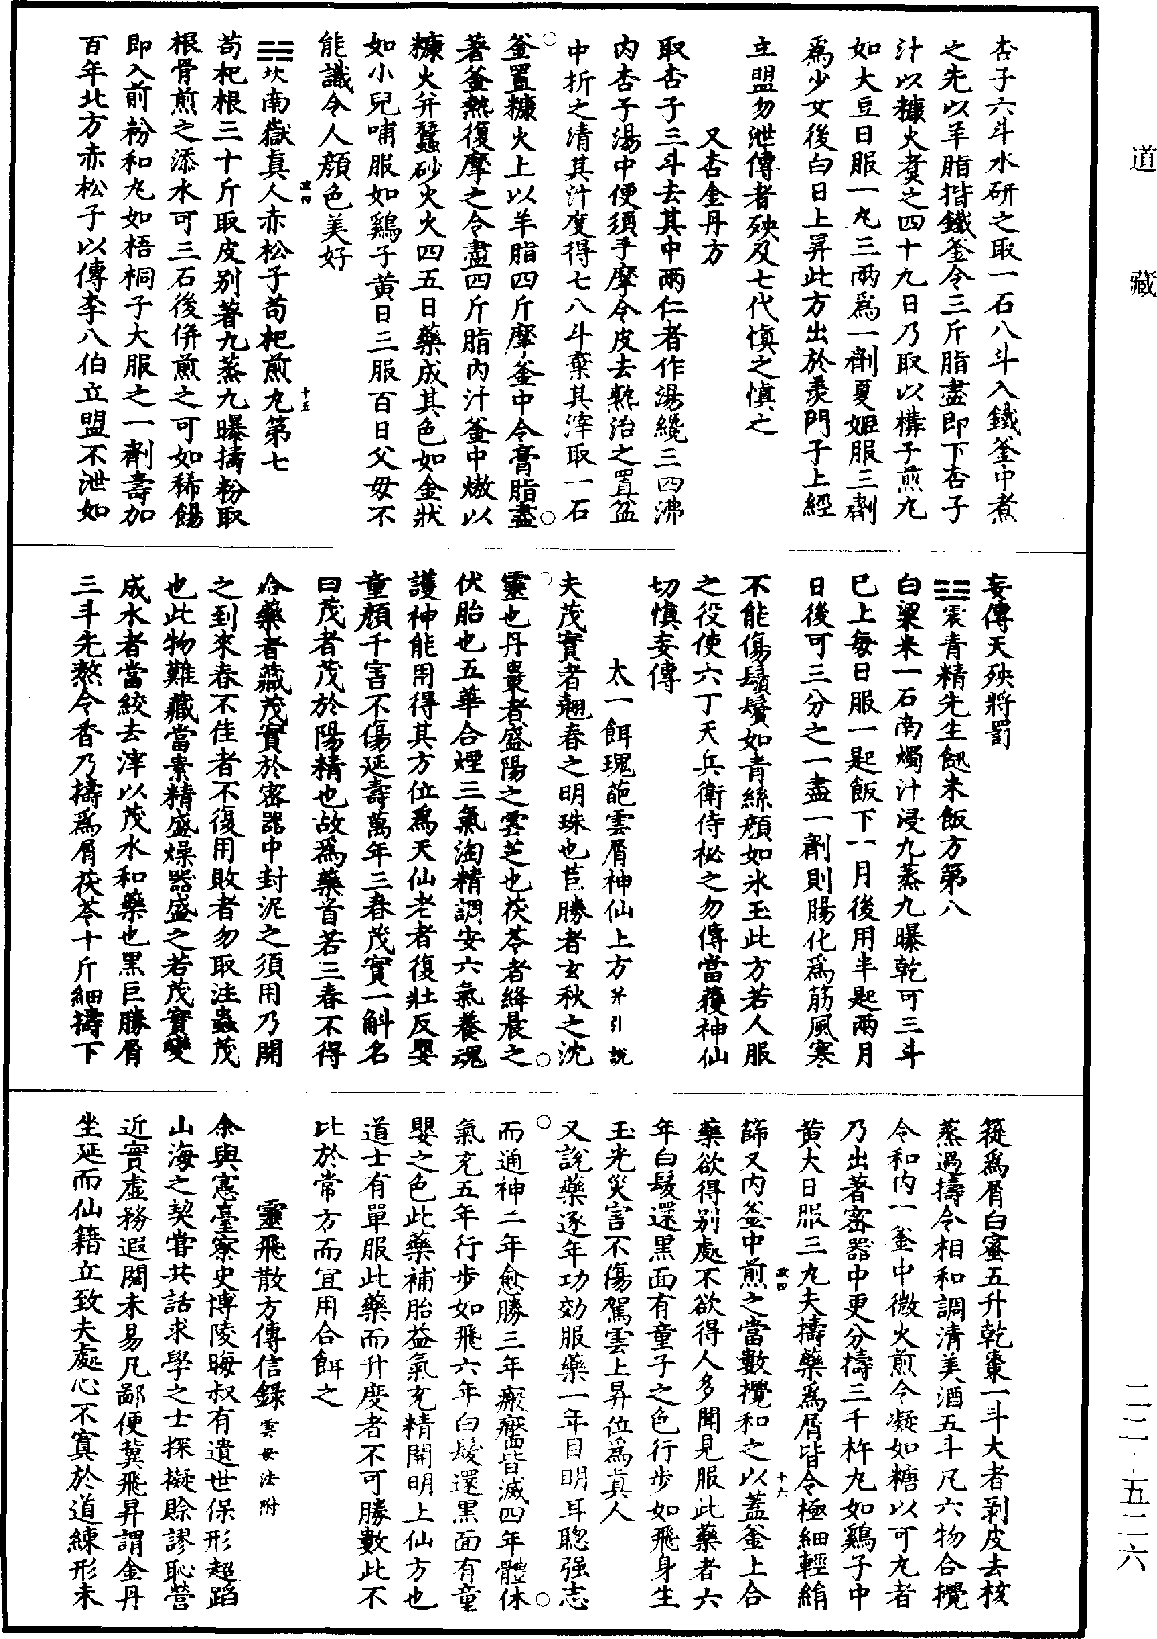 道藏
二二·五二六
杏子六斗水研之取一石八斗入鐵釜中煮
之先以羊脂揩鐵釜令三斤脂盡即下杏子
汁以糠火煑之四十九日乃取以構子煎丸
如大豆日服一丸三兩爲一劑夏姬服三劑
爲少女後白日上昇此方出於羨門子上經
立盟勿泄傳者殃及七代慎之慎之
又杏金丹方
取杏子三斗去其中兩仁者作湯纔三四沸
内杏子湯中便須手摩令皮去熟治之置盆
中折之清其汁度得七八斗棄其滓取一石
釜置糠火上以羊脂四斤摩釜中令膏脂盡
著釜熱復摩之令盡四斤脂内汁釜中熬以
糠火并蠶砂火火四五日藥成其色如金狀
如小兒哺服如鷄子黄日三服百日父母不
能識令人顔色美好
☵坎南嶽真人赤松子苟杞煎丸第七
苟杞根三十斤取皮别著九蒸九曝擣粉取
根骨煎之添水可三石後併煎之可如稀餳
即入前粉和丸如梧桐子大服之一劑壽加
百年北方赤松子以傳李八伯立盟不泄如
妄傳天殃將罰
☳震青精先生䭀米飯方第八
白粱米一石南燭汁浸九蒸九曝乾可三斗
已上每日服一匙飯下一月後用半匙兩月
日後可三分之一盡一劑則腸化爲筋風寒
不能傷鬚鬢如青絲顔如氷玉此方若人服
之役使六丁天兵衛侍秘之勿傳當獲神仙
切慎妄傳
太一餌瑰葩雲屑神仙上方并引説
夫茂實者翹春之明珠也苣勝者玄秋之沈
靈也丹棗者盛陽之雲芝也茯苓者絳晨之
伏胎也五華合煙三氣淘精調安六氣養魂
護神能用得其方位爲天仙老者復壯反嬰
童顔千害不傷延壽萬年三春茂實一斛名
曰茂者茂於陽精也故爲藥首若三春不得
合藥者藏茂實於密器中封泥之須用乃開
之到來春不佳者不復用敗者勿取注蟲茂
也此物難藏當索精盛燥器盛之若茂實變
成水者當絞去滓以茂水和藥也黑巨勝屑
三斗先熬令香乃擣爲屑茯苓十斤細擣下
篵爲屑白蜜五升乾棗一斗大者剥皮去核
蒸過擣令相和調清美酒五斗凡六物合攪
令和内一釜中微火煎令凝如糖以可丸者
乃出著密器中更分擣三千杵丸如鷄子中
黄大日服三丸夫擣藥爲屑皆令極細輕絹
篩又内釜中煎之當數攪和之以蓋釜上合
藥欲得别處不欲得人多聞見服此藥者六
年白髮還黑面有童子之色行步如飛身生
玉光災害不傷駕雲上昇位爲真人
又説藥逐年功効服藥一年目明耳聰强志
而通神二年愈勝三年瘢癰皆滅四年體休
氣充五年行步如飛六年白髮還黑面有童
嬰之色此藥補胎益氣充精開明上仙方也
道士有單服此藥而升度者不可勝數此不
比於常方而宜用合餌之
靈飛散方傳信録雲母法附
余與憲臺察史博陵晦叔有遺世保形超蹈
山海之契嘗共話求學之士探擬賒謬恥營
近實虚務遐闊未易凡鄙便冀飛昇謂金丹
坐延而仙籍立致夫處心不寘於道練形未